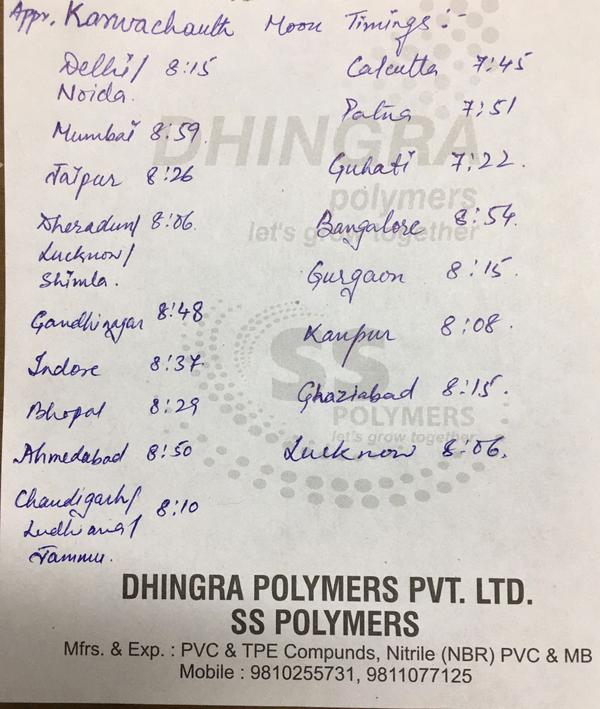 Appr. Karwachauth Moon Timings :-
Delhi/ 8:15
Noida.
Mumbai 8:59.
Jaipur 8:26
Dheradun/ 8:06.
Lucknow/
Shimla.
Gandhinagar 8:48
Indore 8:37.
Bhopal 8:29
Ahmedabad 8:50
Chandigarh/ 8:10
Ludhiana/
Jammu.
Calcutta 7:45
Patna 7:51
Guhati 7:22.
Bangalore 8:54.
Gurgaon 8:15.
Kanpur 8:08.
Ghaziabad 8:15.
Lucknow 8:06.
DHINGRA
polymers
let's grow together
SS
POLYMERS
let's grow together
DHINGRA POLYMERS PVT. LTD.
SS POLYMERS
Mfrs. & Exp. : PVC & TPE Compunds, Nitrile (NBR) PVC & MB
Mobile : 9810255731, 9811077125